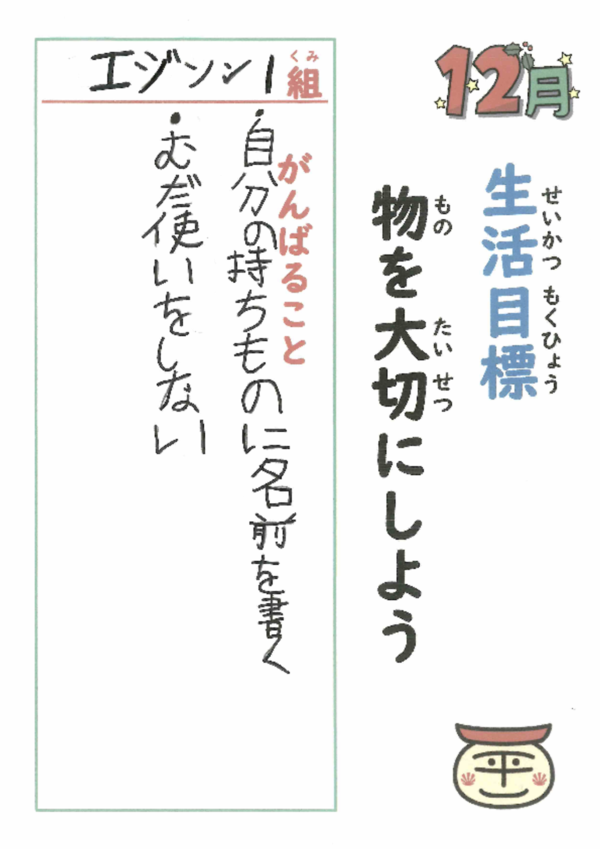 12月
生活目標
せいかつ もくひょう
物を大切にしよう
もの たい せつ
エジソン1組
くみ
がんばること
・自分の持ちものに名前を書く
・むだ使いをしない
平